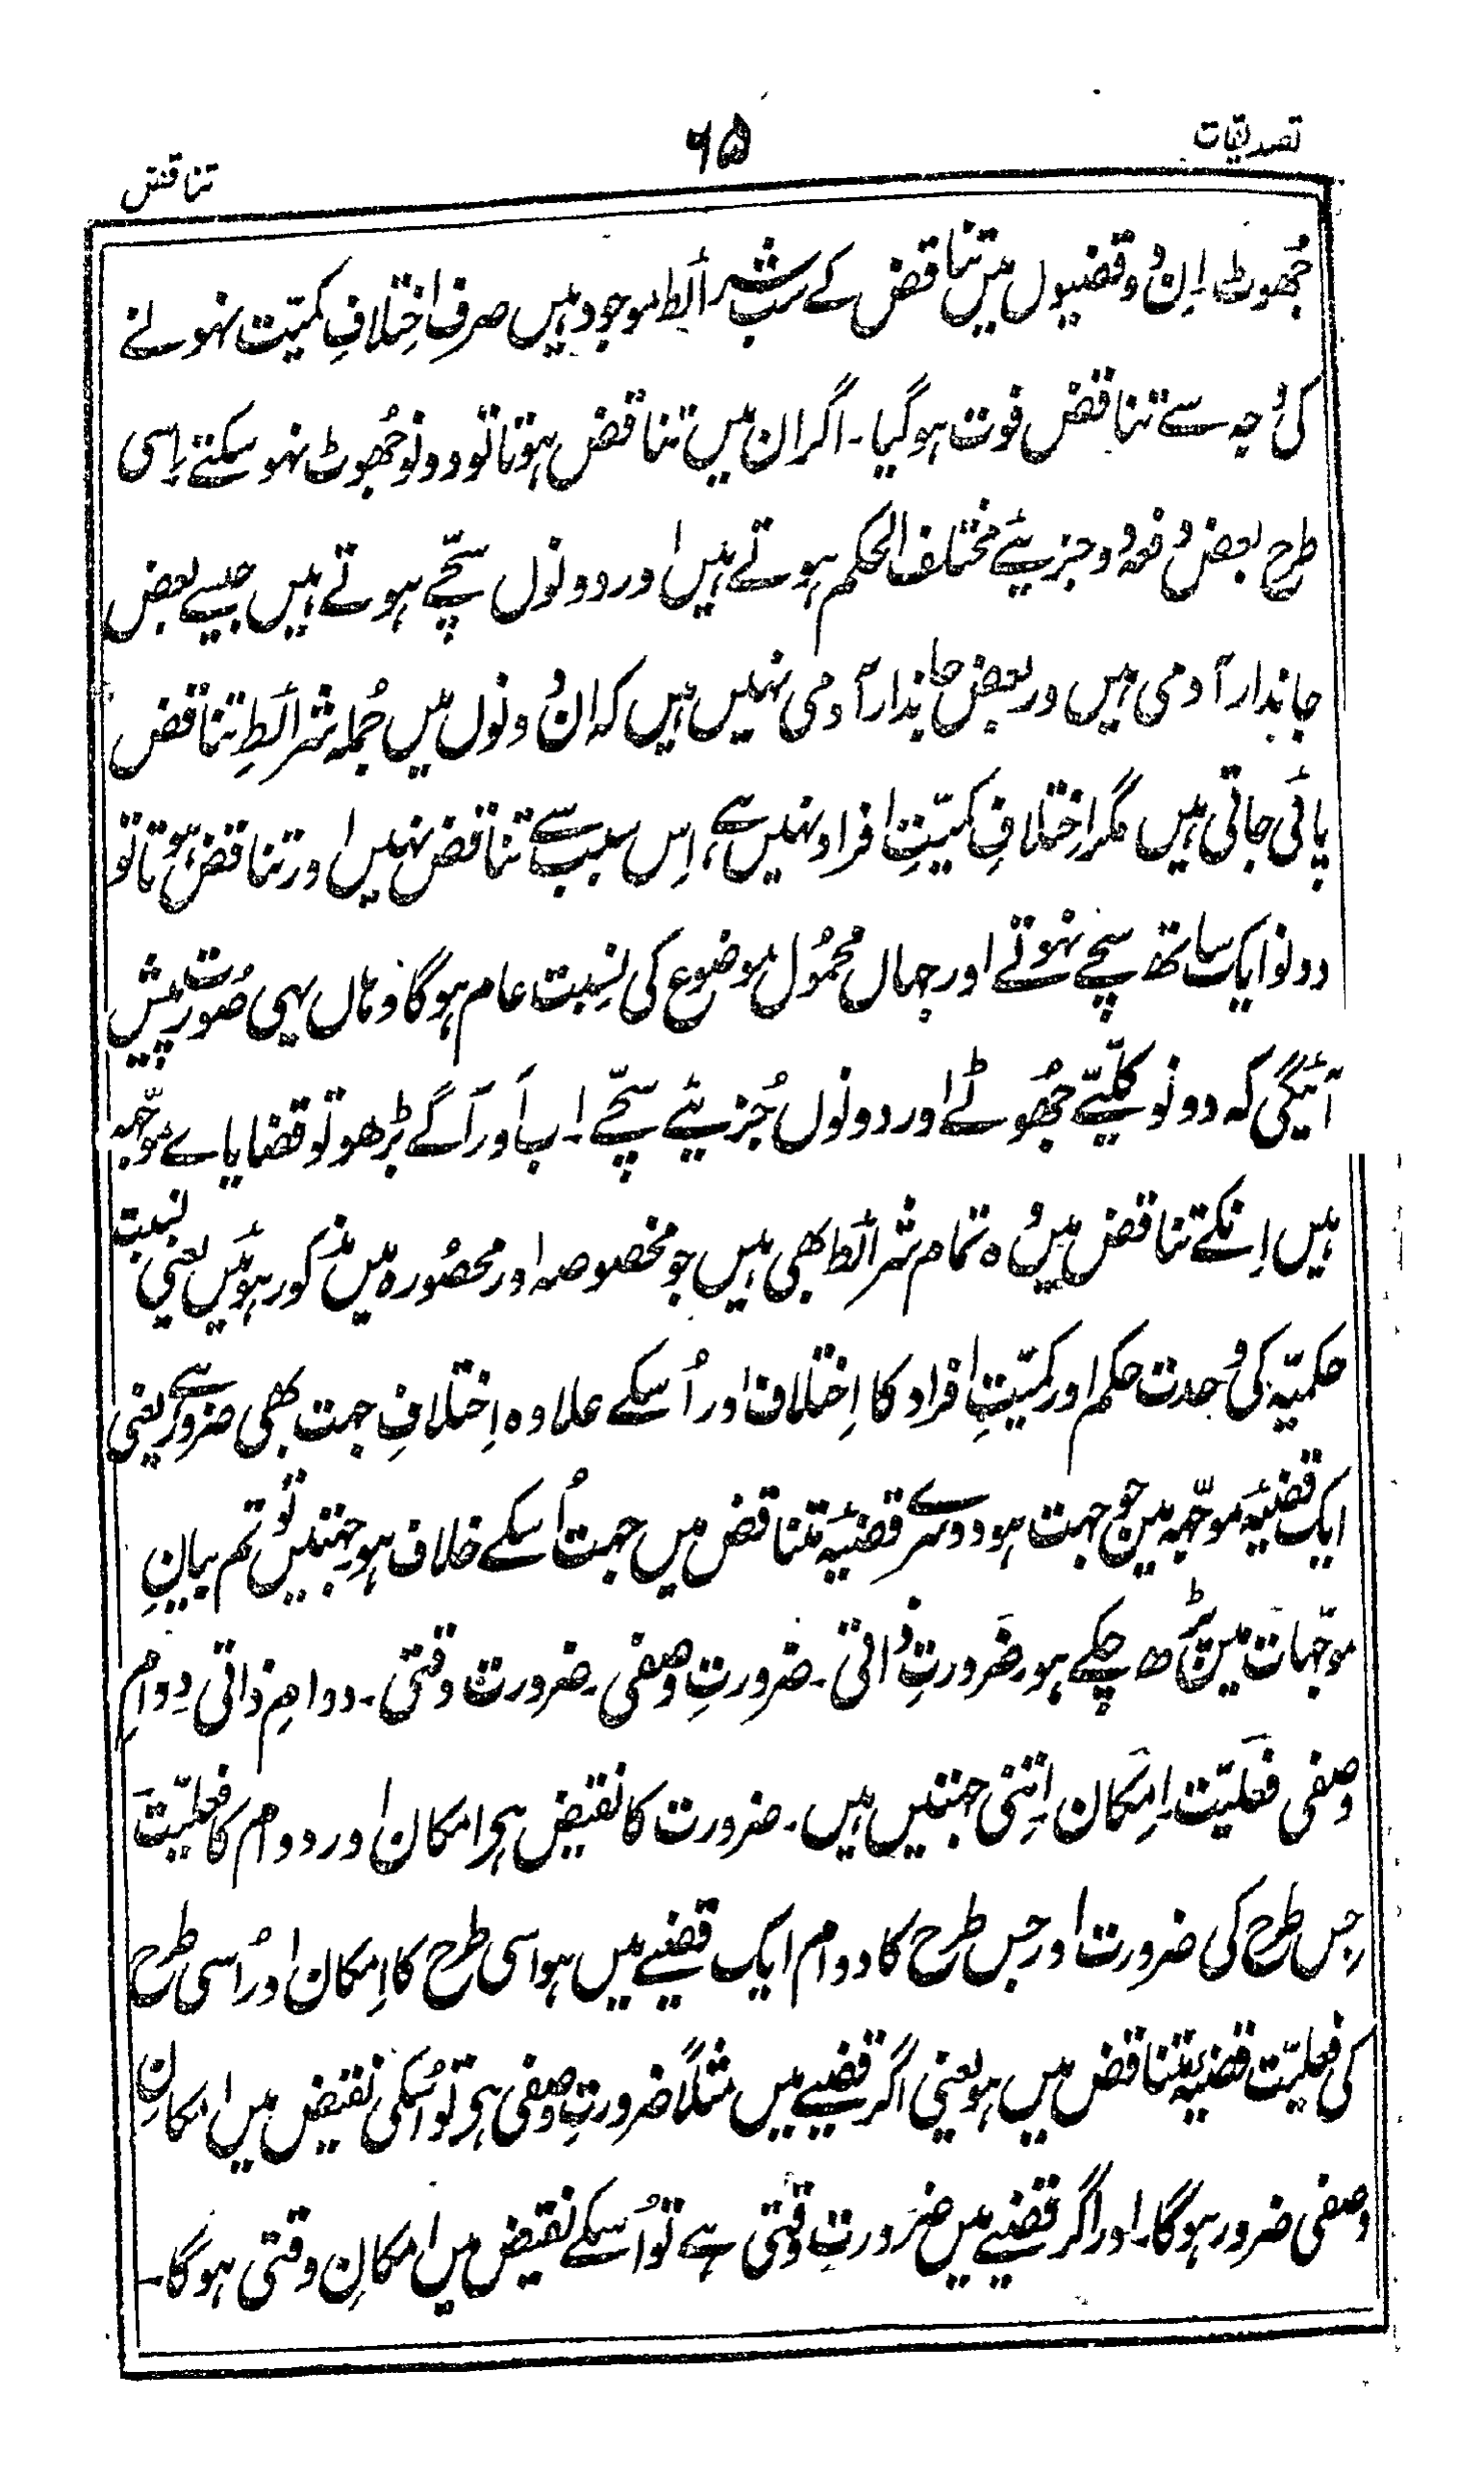 تصدیقات
۶۵
تناقض
جُھوٹے اِن دو قضیوں میں تناقض کے سب شرائط موجود ہیں صرف اِختلافِ کمیّت نہونے
کی وجہ سے تناقض فوت ہوگیا۔ اگر ان میں تناقض ہوتا تو دونو جُھوٹ نہو سکتے اِسی
طرح بعض دفعہ دو جزیئے مختلف الحکم ہوتے ہیں اور دونوں سچّے ہوتے ہیں جیسے بعض
جاندار آدمی ہیں ور بعض جاندار آدمی نہیں ہیں کہ ان دونوں میں جُملہ شرائطِ تناقض
پائی جاتی ہیں مگر اِختلافِ کمیّتِ افراد نہیں ہے، اِس سبب سے تناقض نہیں اور تناقض ہوتا تو
دونو ایک ساتھ سچے نہوتے اور جہاں محمُول موضوع کی نِسبت عام ہوگا وہاں یہی صُورت پیش
آئیگی کہ دونو کلّیئے جُھوٹے اور دونوں جُزیئے سچّے۔ اب اَور آگے بڑھو تو قضایاے موجّہہ
ہیں اِنکے تناقض میں وُہ تمام شرائط بھی ہیں جو مخصوصہ اور محصُورہ میں مذکور ہوئیں یعنی نسبت
حکمیّہ کی وُحدت حکم اور کمیّتِ افراد کا اِختلاف اور اُسکے علاوہ اِختلافِ جہت بھی ضرور ہے یعنی
ایک قضیّہَ موجّہہ میں جو جہت ہو دوسرے قضیّہ متناقض میں جہت اُسکے خلاف ہو جہتیں تو تم بیانِ
موجّہات میں پڑھ چکے ہو۔ ضَرورتِ ذاتی۔ ضرورتِ وصفی۔ ضرورت وقتی۔ دوامِ ذاتی دوامِ
وصفی فعلیّت۔ اِمکان۔ اِتنی جہتیں ہیں۔ ضرورت کا نقیض ہی امکان اور دوام کا فعلیّت
جِس طرح کی ضرورت اور جس طرح کا دوام ایک قضیے میں ہو اسی طرح کا اِمکان اور اُسی طرح
کی فعلیّت قضیہ متناقض میں ہو یعنی اگر قضیے میں مثلًا ضرورتِ وصفی ہی تو اُسکی نقیض میں امکانِ
وصفی ضرور ہوگا۔ اور اگر قضیے میں ضَرورتِ وقتی ہے تو اُسکے نقیض میں امکانِ وقتی ہوگا۔